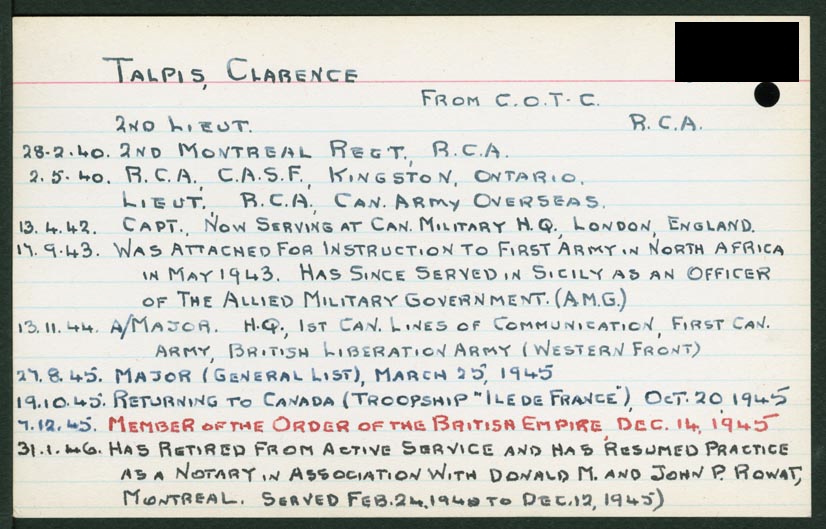 TALPIS, CLARENCE
FROM C.O.T.C.
2ND LIEUT. R.C.A.
28.2.40. 2ND MONTREAL REGT., R.C.A.
2.5.40. R.C.A., C.A.S.F., KINGSTON, ONTARIO.
LIEUT., R.C.A., CAN. ARMY OVERSEAS.
13.4.42. CAPT., NOW SERVING AT CAN. MILITARY H.Q., LONDON, ENGLAND.
17.9.43. WAS ATTACHED FOR INSTRUCTION TO FIRST ARMY IN NORTH AFRICA
IN MAY 1943. HAS SINCE SERVED IN SICILY AS AN OFFICER
OF THE ALLIED MILITARY GOVERNMENT. (A.M.G.)
13.11.44. A/MAJOR. H.Q., 1ST CAN. LINES OF COMMUNICATION, FIRST CAN.
ARMY, BRITISH LIBERATION ARMY (WESTERN FRONT)
27.8.45. MAJOR (GENERAL LIST), MARCH 25, 1945
19.10.45. RETURNING TO CANADA (TROOPSHIP "ILE DE FRANCE"), OCT. 20, 1945
7.12.45. MEMBER OF THE ORDER OF THE BRITISH EMPIRE, DEC. 14, 1945
31.1.46. HAS RETIRED FROM ACTIVE SERVICE AND HAS RESUMED PRACTICE
AS A NOTARY IN ASSOCIATION WITH DONALD M. AND JOHN P. ROWAT,
MONTREAL. SERVED FEB. 24, 1940 TO DEC. 12, 1945)